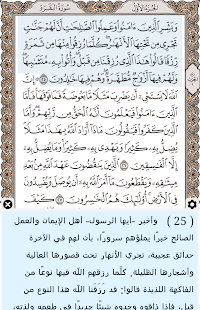 الجزء الأول سورة البقرة
وَبَشِّرِ ٱلَّذِينَ ءَامَنُوا۟ وَعَمِلُوا۟ ٱلصَّٰلِحَٰتِ أَنَّ لَهُمْ جَنَّٰتٍ
تَجْرِى مِن تَحْتِهَا ٱلْأَنْهَٰرُ كُلَّمَا رُزِقُوا۟ مِنْهَا مِن ثَمَرَةٍ
رِّزْقًا قَالُوا۟ هَٰذَا ٱلَّذِى رُزِقْنَا مِن قَبْلُ وَأُتُوا۟ بِهِۦ مُتَشَٰبِهًا
وَلَهُمْ فِيهَآ أَزْوَٰجٌ مُّطَهَّرَةٌ وَهُمْ فِيهَا خَٰلِدُونَ ٢٥ ۞ إِنَّ
ٱللَّهَ لَا يَسْتَحْىِۦٓ أَن يَضْرِبَ مَثَلًا مَّا بَعُوضَةً فَمَا فَوْقَهَا فَأَمَّا
ٱلَّذِينَ ءَامَنُوا۟ فَيَعْلَمُونَ أَنَّهُ ٱلْحَقُّ مِن رَّبِّهِمْ وَأَمَّا
ٱلَّذِينَ كَفَرُوا۟ فَيَقُولُونَ مَاذَآ أَرَادَ ٱللَّهُ بِهَٰذَا مَثَلًا
يُضِلُّ بِهِۦ كَثِيرًا وَيَهْدِى بِهِۦ كَثِيرًا وَمَا يُضِلُّ بِهِۦٓ
إِلَّا ٱلْفَٰسِقِينَ ٢٦ ٱلَّذِينَ يَنقُضُونَ عَهْدَ ٱللَّهِ مِنۢ بَعْدِ
مِيثَٰقِهِۦ وَيَقْطَعُونَ مَآ أَمَرَ ٱللَّهُ بِهِۦٓ أَن يُوصَلَ وَيُفْسِدُونَ
فِى ٱلْأَرْضِ أُو۟لَٰٓئِكَ هُمُ ٱلْخَٰسِرُونَ ٢٧ كَيْفَ
( 25 ) وأخبر -أيها الرسول- أهل الإيمان والعمل
الصالح خبرًا يملؤهم سرورًا، بأن لهم في الآخرة
حدائق عجيبة، تجري الأنهار تحت قصورها العالية
وأشجارها الظليلة. كلَّما رزقهم الله فيها نوعًا من
الفاكهة اللذيذة قالوا: قد رَزَقَنا الله هذا النوع من
قبل، فإذا ذاقوه وجدوه شيئًا جديدًا في طعمه ولذته،